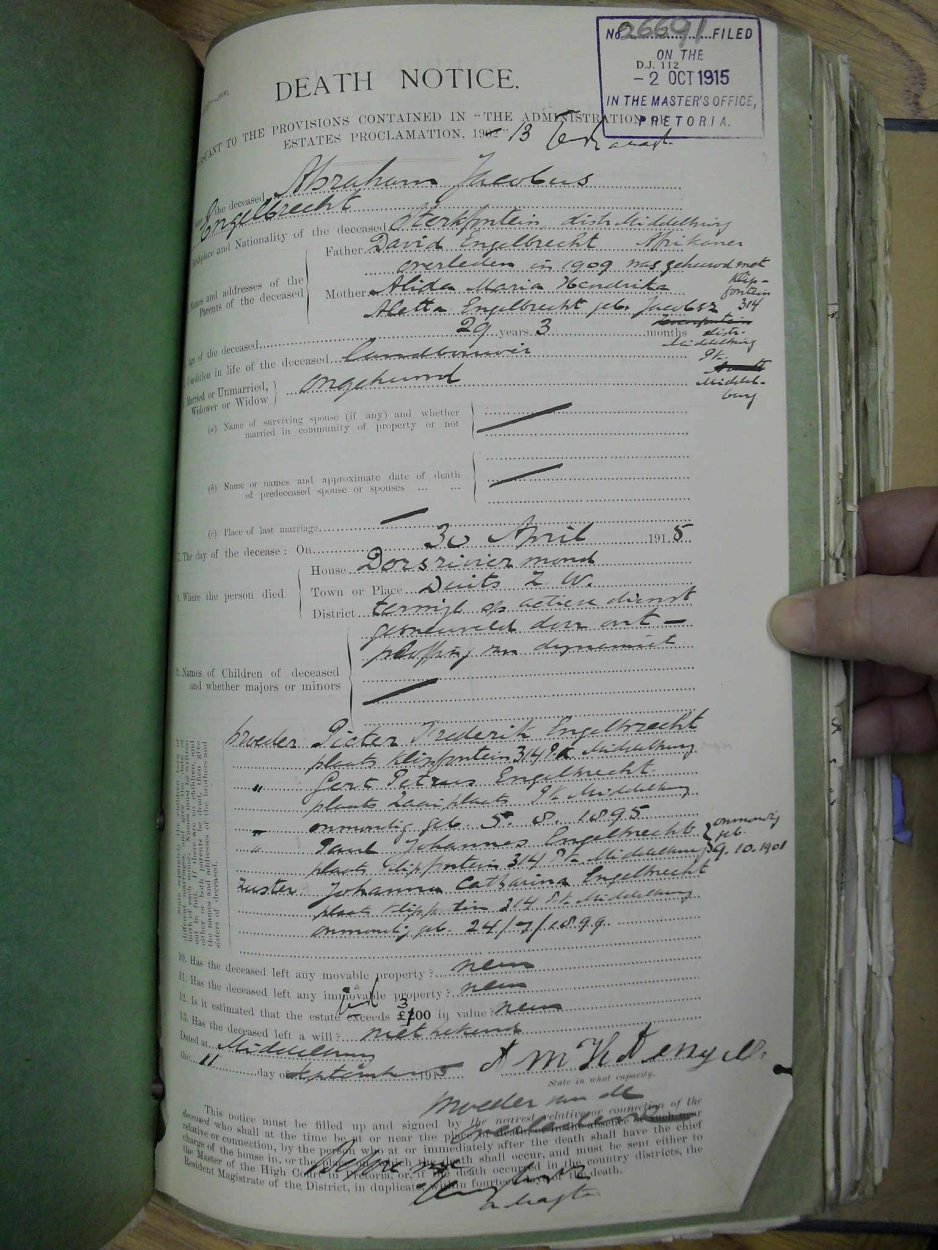 No 26691 FILED
ON THE
D.J. 112
- 2 OCT 1915
IN THE MASTER'S OFFICE,
PRETORIA.
DEATH NOTICE.
TO THE PROVISIONS CONTAINED IN "THE ADMINISTRATION OF
ESTATES PROCLAMATION, 1902" 13
the deceased Abraham Jacobus
Engelbrecht
and Nationality of the deceased Sterkfontein distr. Middelburg
Father David Engelbrecht Afrikaner
overleden in 1909 was gehuwd met
Names and addresses of the
Parents of the deceased
Mother Alida Maria Hendrika
Aletta Engelbrecht geb. Jacobsz
Klip-
fontein
314
distr.
Middelburg
Age of the deceased 29 years 3 months
Condition in life of the deceased Landbouwer
Married or Unmarried,
Widower or Widow
ongehuwd
Pk.
Middel-
burg
(a) Name of surviving spouse (if any) and whether
married in community of property or not
(b) Name or names and approximate date of death
of predeceased spouse or spouses ... ...
(c) Place of last marriage
7. The day of the decease: On 30 April 1915
8. Where the person died
House Dorsrivier mond
Town or Place Duits Z. W.
District terwijl op actieve dienst
gesneuveld door ont-
ploffing van dynamiet
9. Names of Children of deceased
and whether majors or minors
broeder Pieter Frederik Engelbrecht
plaats Klipfontein 314 Pk Middelburg
" Gert Petrus Engelbrecht
plaats Zaaiplaats Pk Middelburg
onmondig geb. 5. 8. 1895
" Paul Johannes Engelbrecht
onmondig
geb.
plaats Klipfontein 314 Pk Middelburg 9.10.1901
zuster Johanna Catharina Engelbrecht
plaats Klipfontein 314 Pk Middelburg
onmondig geb. 24/7/1899
10. Has the deceased left any movable property? neen
11. Has the deceased left any immovable property? neen
12. Is it estimated that the estate exceeds £300 in value? neen
13. Has the deceased left a will? niet bekend
Dated at Middelburg
the 11 day of September 1915
State in what capacity.
moeder van de
overledene
This notice must be filled up and signed by the nearest relative or connection of the
deceased who shall at the time be at or near the place of death
relative or connection, by the person who at or immediately after the death shall have the chief
charge of the house in, or the place on which the death shall occur, and must be sent either to
the Master of the High Court in Pretoria, or, if the death occurred in the country districts, the
Resident Magistrate of the District, in duplicate, within fourteen days of the death.
Before me